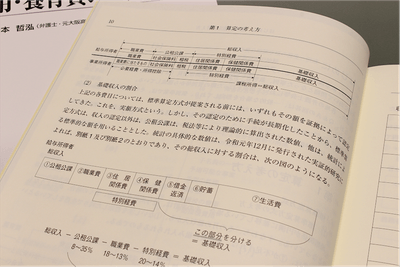 用・養育費
本 哲泓（弁護士・元大阪高
10
第1 算定の考え方
総収入
給与所得者
職業費
公租公課
特別経費
基礎収入
事業所得者
社会保険料
租税
住居関係費
保健関係費
特別経費
課税所得＝総収入
基礎収入
(2) 基礎収入の割合
上記の各費目については、標準算定方式が提案される前には、いずれもその額を証拠によって認定
してきた。これを、実額方式という。しかし、その認定のために手続が長期化したことから、標準算
定方式は、収入の認定以外は、公租公課は、税法等により理論的に算出された数値、他は、統計によ
る標準的な額を用いることとした。統計の具体的な数値は、令和元年12月に発行された実証的研究に
よれば、別紙1及び別紙2のとおりであり、その総収入に対する割合は、次の図のようになる。
給与所得者
総収入
①公租公課
②職業費
③住居関係費
④保健関係費
⑤借金返済
⑥貯蓄
⑦生活費
特別経費
この部分を分ける
＝基礎収入
総収入 － 公租公課 － 職業費 － 特別経費 ＝ 基礎収入
8～35% 18～13% 20～14%